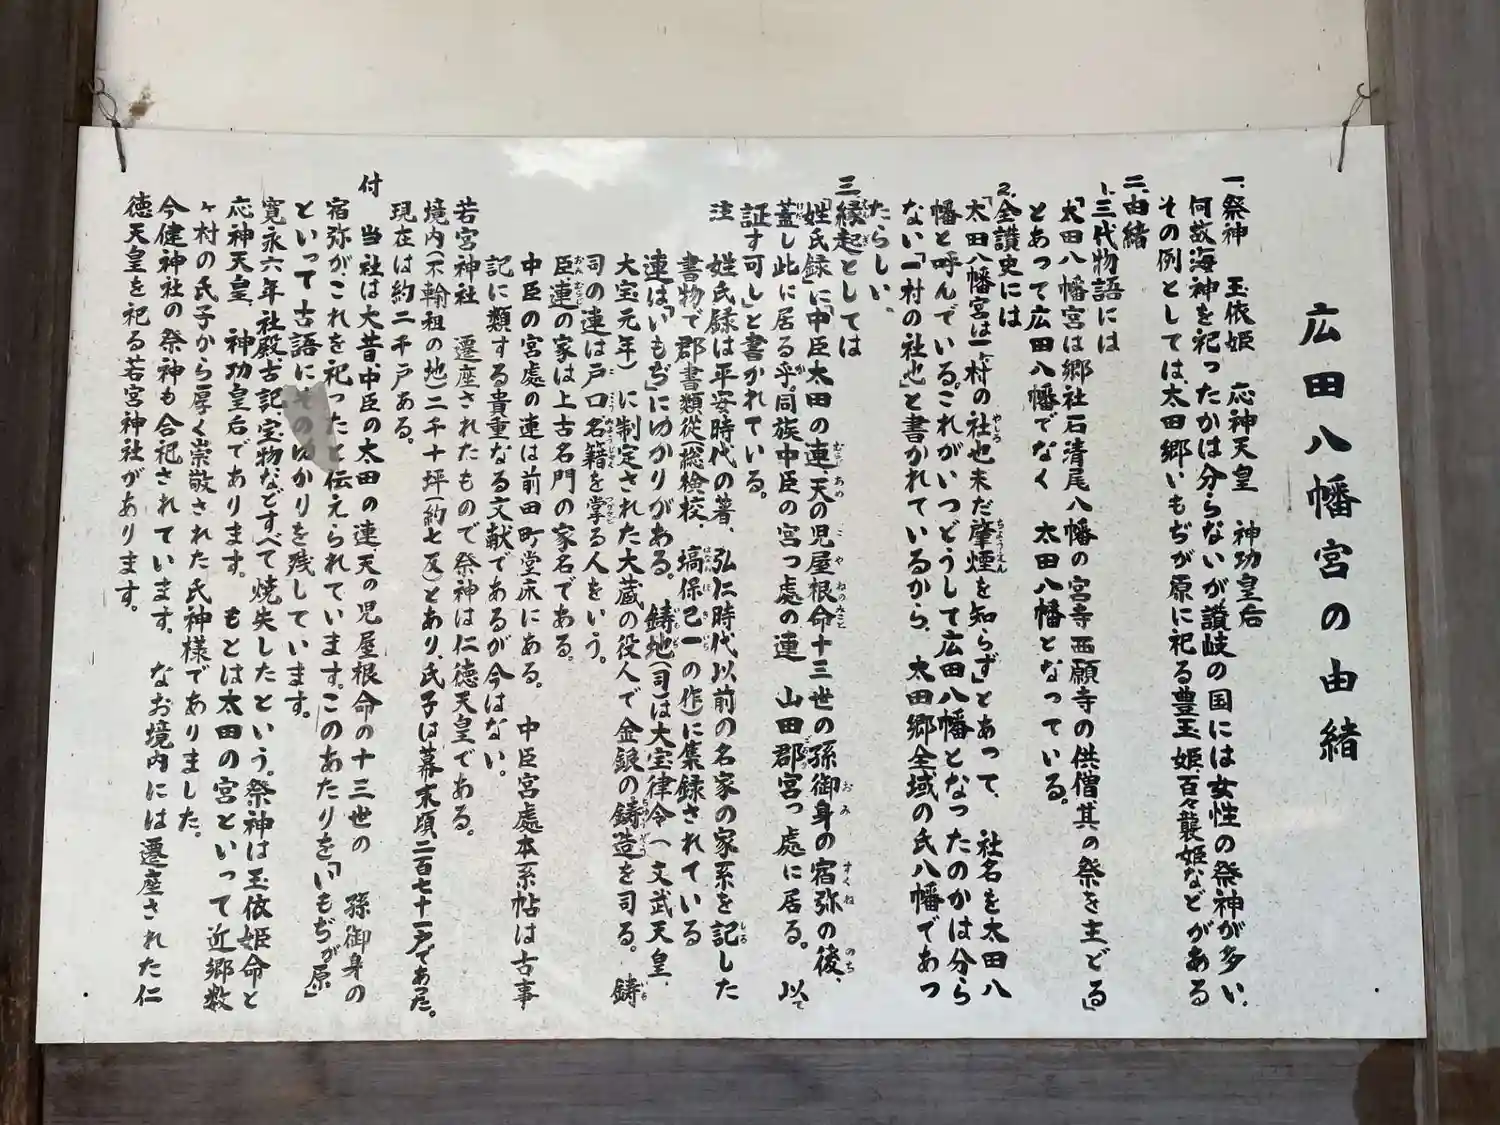 広田八幡宮の由緒
一、祭神　玉依姫　応神天皇　神功皇后
何故海神を祀ったかは分らないが讃岐の国には女性の祭神が多い、
その例としては、太田郷いもぢが原に祀る豊玉姫、百々襲姫などがある
二、由緒
1.三代物語には
「太田八幡宮は郷社石清尾八幡の宮寺西願寺の供僧其の祭を主どる」
とあって広田八幡でなく　太田八幡となっている。
2.全讃史には
「太田八幡宮は二ヶ村の社也未だ肇煙を知らず」とあって、　社名を太田八
幡と呼んでいる。これがいつどうして広田八幡となったのかは分ら
ない「一村の社也」と書かれているから、太田郷全域の氏八幡であっ
たらしい、
三、縁起としては
「姓氏録」に「中臣太田の連天の児屋根命十三世の孫御身の宿弥の後、
蓋し此に居る乎。同族中臣の宮っ處の連　山田郡宮っ處に居る。　以て
証す可し」と書かれている。
注　姓氏録は平安時代の著、弘仁時代以前の名家の家系を記した
書物で郡書類従（総検校　塙保己一の作）に集録されている
連は「いもぢ」にゆかりがある。　鋳地（司）は大宝律令（文武天皇、
大宝元年）に制定された大蔵の役人で金銀の鋳造を司る。　鋳
司の連は戸口名籍を掌る人をいう。
臣、連の家は上古名門の家名である。
中臣の宮處の連は前田町堂床にある。　中臣宮處本系帖は古事
記に類する貴重なる文献であるが今はない。
若宮神社　遷座されたもので祭神は仁徳天皇である。
境内（不輸祖の地）二千十坪（約七反）とあり、氏子は幕末頃二百七十一戸であった。
現在は約二千戸ある。
付　当社は大昔、中臣の太田の連天の児屋根命の十三世の　孫御身の
宿弥が、これを祀ったと伝えられています。このあたりを「いもぢが原」
といって古語にそのゆかりを残しています。
寛永六年社殿古記宝物などすべて焼失したという。祭神は玉依姫命と
応神天皇、神功皇后であります。　もとは太田の宮といって近郷数
ヶ村の氏子から厚く崇敬された氏神様でありました。
今健神社の祭神も合祀されています。　なお境内には遷座された仁
徳天皇を祀る若宮神社があります。